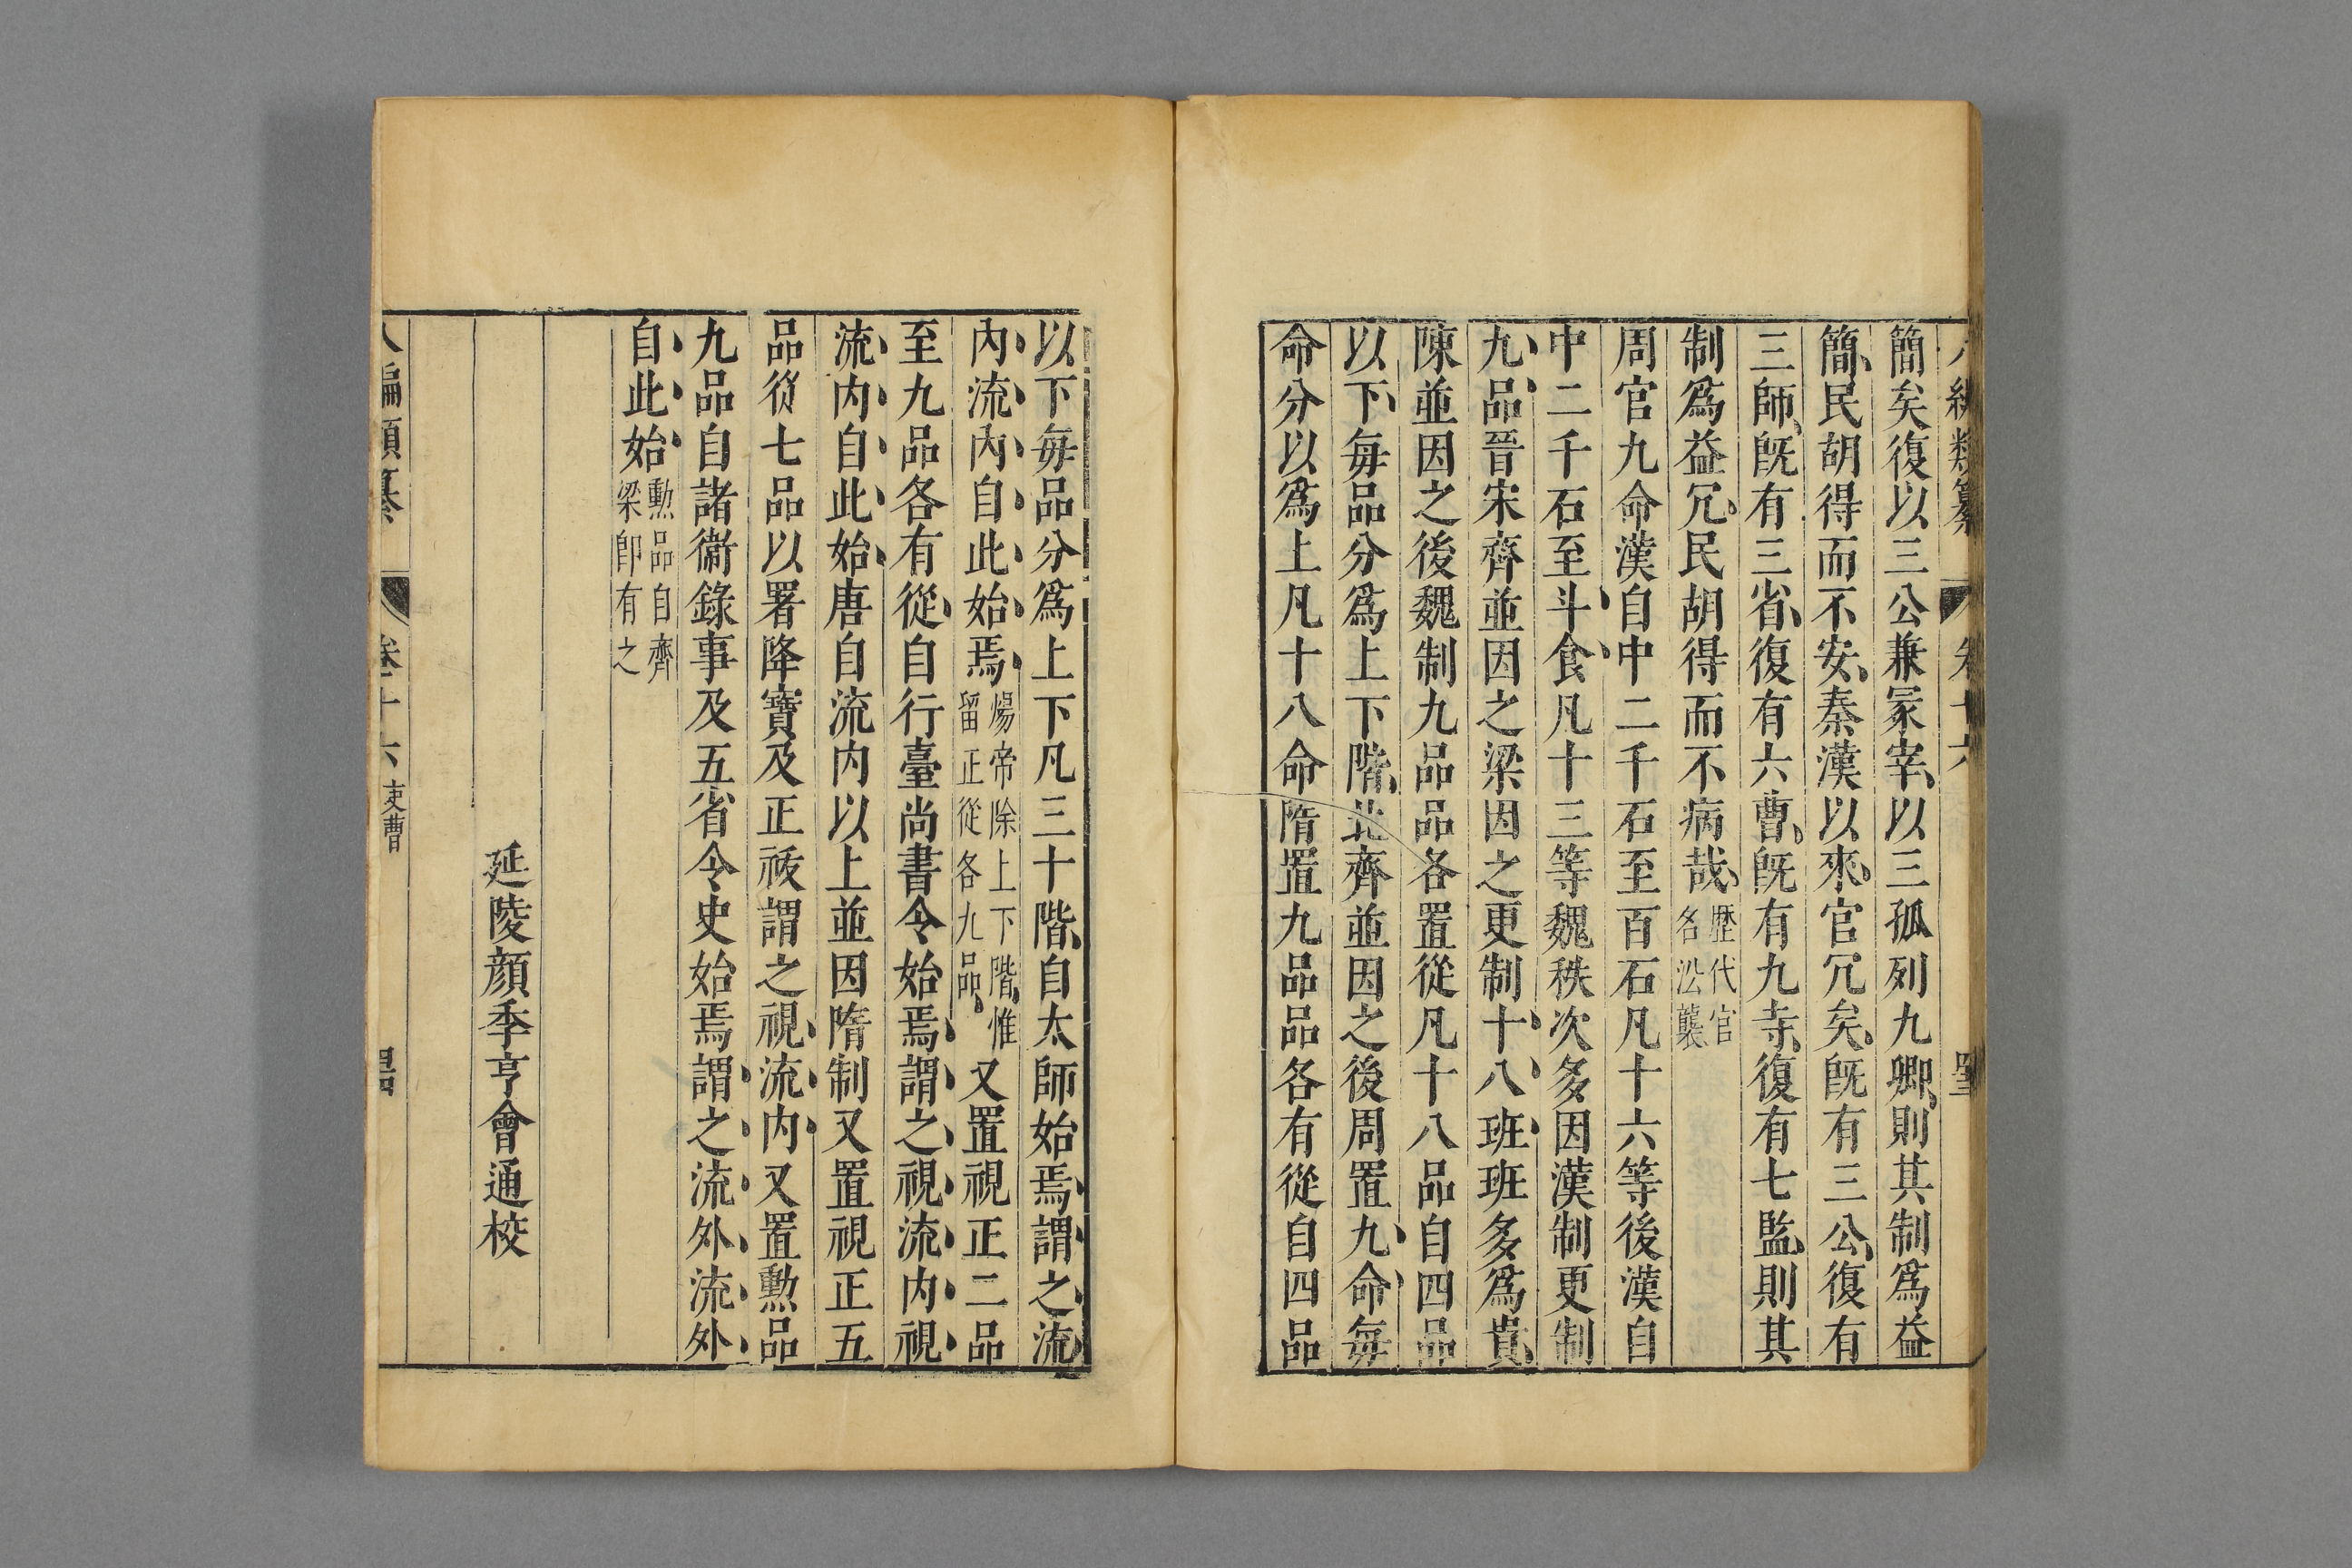 八編類纂 卷十六 罜
簡矣復以三公兼冢宰以三孤列九卿則其制爲益
簡民胡得而不安秦漢以來官冗矣旣有三公復有
三師旣有三省復有六曹旣有九寺復有七監則其
制爲益冗民胡得而不病哉歷代官名沿襲
周官九命漢自中二千石至百石凡十六等後漢自
中二千石至斗食凡十三等魏秩次多因漢制更制
九品晉宋齊並因之梁因之更制十八班班多爲貴
陳並因之後魏制九品品各置從凡十八品自四品
以下每品分爲上下階北齊並因之後周置九命每
命分以爲上凡十八命隋置九品品各有從自四品
以下每品分爲上下凡三十階自太師始焉謂之流
內流內自此始焉煬帝除上下階惟留正從各九品又置視正二品
至九品各有從自行臺尚書令始焉謂之視流內視
流內自此始唐自流內以上並因隋制又置視正五
品從七品以署降寶及正祓謂之視流內又置勲品
九品自諸衞錄事及五省令史始焉謂之流外流外
自此始勲品自齊梁卽有之
延陵顔季亨會通校
八編類纂 卷十六 吏曹